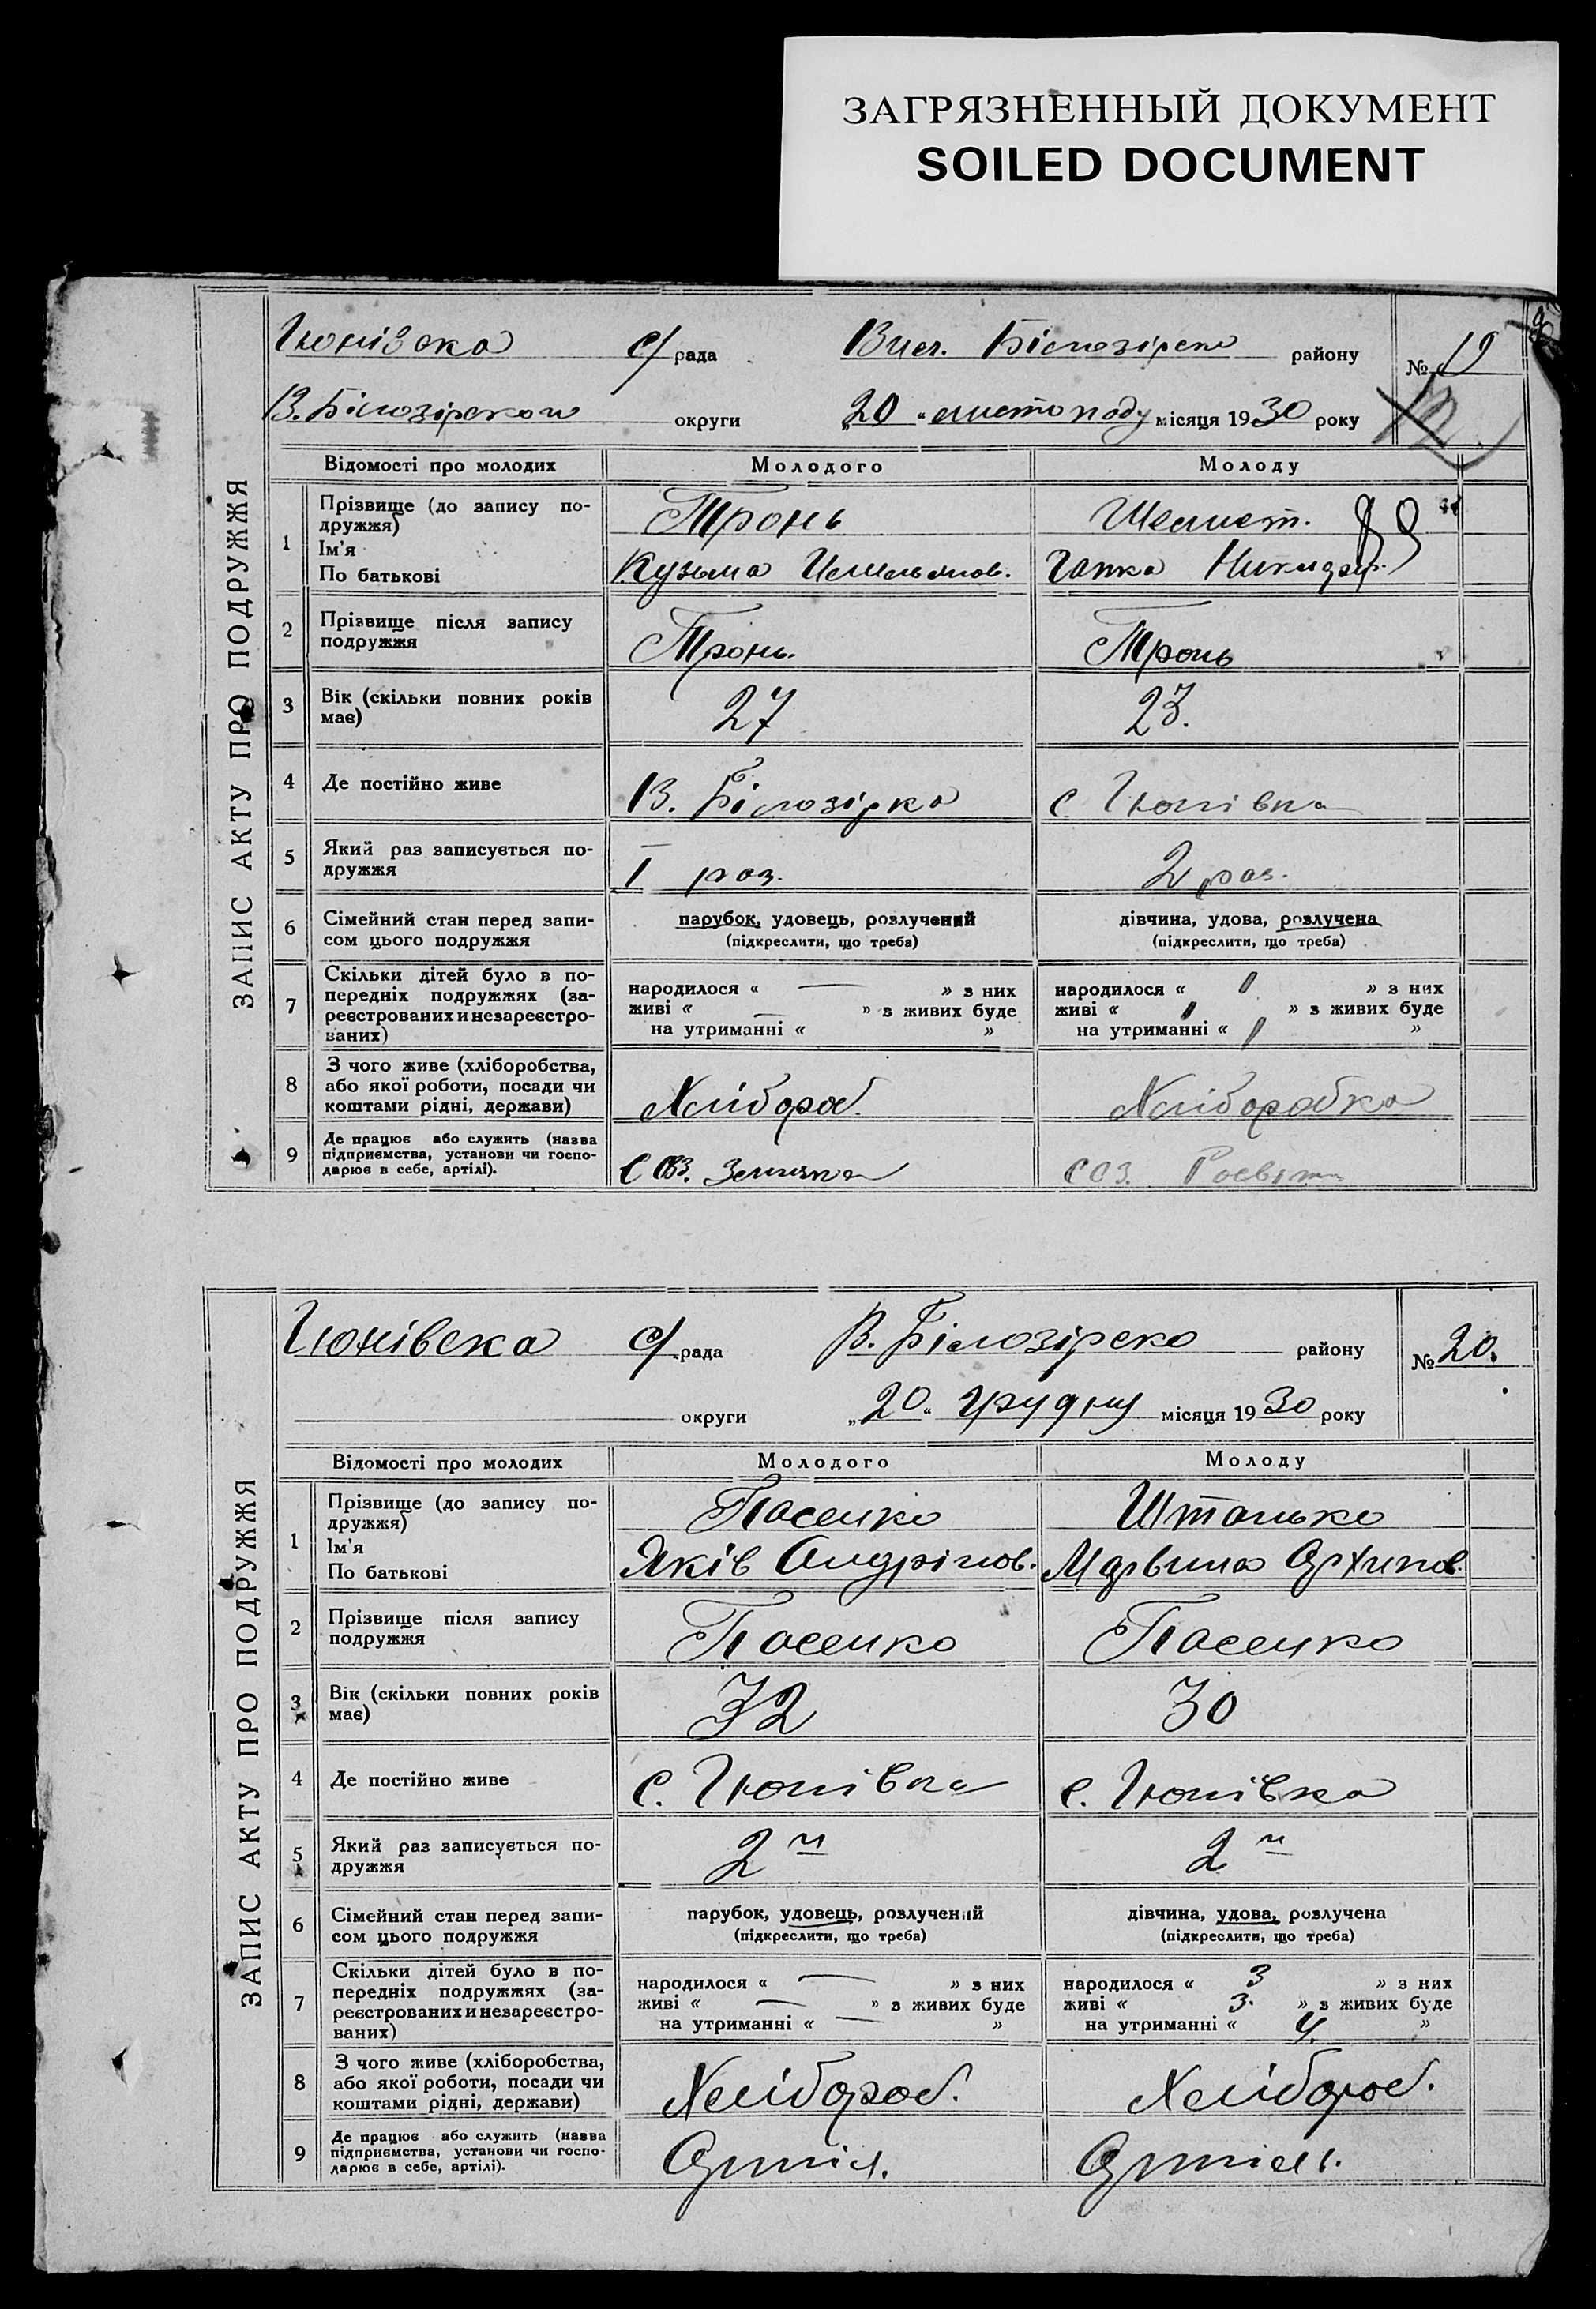 ЗАГРЯЗНЕННЫЙ ДОКУМЕНТ
SOILED DOCUMENT
ЗАПИС АКТУ ПРО ПОДРУЖЖЯ
Гюнівска с/рада Білозірско району № 19
В. Білозірской округи „20“ листопаду місяця 1930 року
Відомості про молодих Молодого Молоду
1 Прізвище (до запису по-
дружжя)
Ім'я
По батькові
Тронь
Кузьма Имельянов. Гапка
2 Прізвище після запису
подружжя
Тронь. Тронь
3 Вік (скільки повних років
має)
27 23.
4 Де постійно живе В. Білозірка с. Гюнівка
5 Який раз записується по-
дружжя
I раз. 2 раз.
6 Сімейний стан перед запи-
сом цього подружжя
парубок, удовець, розлучений дівчина, удова, розлучена
(підкреслити, що треба) (підкреслити, що треба)
7 Скільки дітей було в по-
передніх подружжях (за-
реєстрованих и незареєстро-
ваних)
народилося « — » з них народилося « 1 » з них
живі « — » з живих буде живі « 1 » з живих буде
на утриманні « » на утриманні « 1 »
8 З чого живе (хліборобства,
або якої роботи, посади чи
коштами рідні, держави)
Хлібороб. Хліборобка
9 Де працює або служить (назва
підприємства, установи чи госпо-
дарює в себе, артілі).
СОЗ. СОЗ.
ЗАПИС АКТУ ПРО ПОДРУЖЖЯ
Гюнівска с/рада В. Білозірско району № 20.
округи „20“ грудня місяця 1930 року
Відомості про молодих Молодого Молоду
1 Прізвище (до запису по-
дружжя)
Ім'я
По батькові
Пасенко Штанько
Яків Андріянов. Мар Архипов.
2 Прізвище після запису
подружжя
Пасенко Пасенко
3 Вік (скільки повних років
має)
32 30
4 Де постійно живе с. Гюнівка с. Гюнівка
5 Який раз записується по-
дружжя
2й 2й
6 Сімейний стан перед запи-
сом цього подружжя
парубок, удовець, розлучений дівчина, удова, розлучена
(підкреслити, що треба) (підкреслити, що треба)
7 Скільки дітей було в по-
передніх подружжях (за-
реєстрованих и незареєстро-
ваних)
народилося « — » з них народилося « 3 » з них
живі « — » з живих буде живі « 3. » з живих буде
на утриманні « — » на утриманні « »
8 З чого живе (хліборобства,
або якої роботи, посади чи
коштами рідні, держави)
Хлібороб. Хлібороб.
9 Де працює або служить (назва
підприємства, установи чи госпо-
дарює в себе, артілі).
Артіл. Артіль.